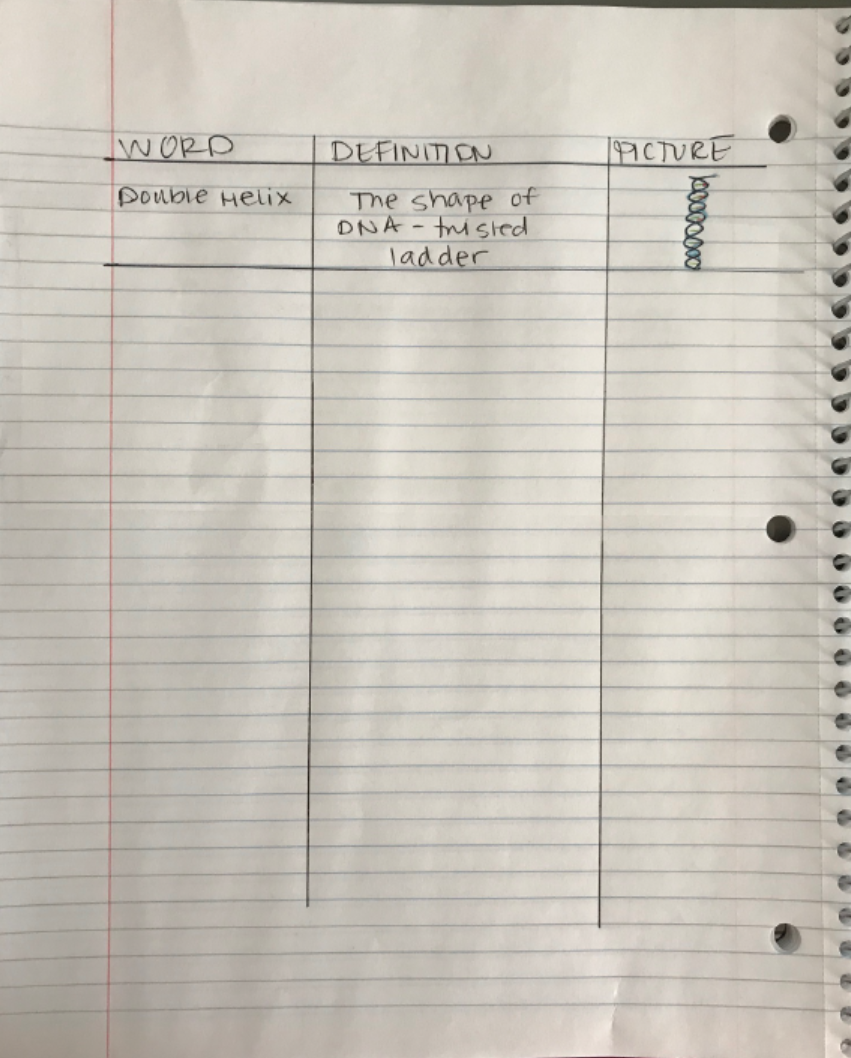 WORD DEFINITION PICTURE
Double Helix The shape of
DNA - twisted
ladder